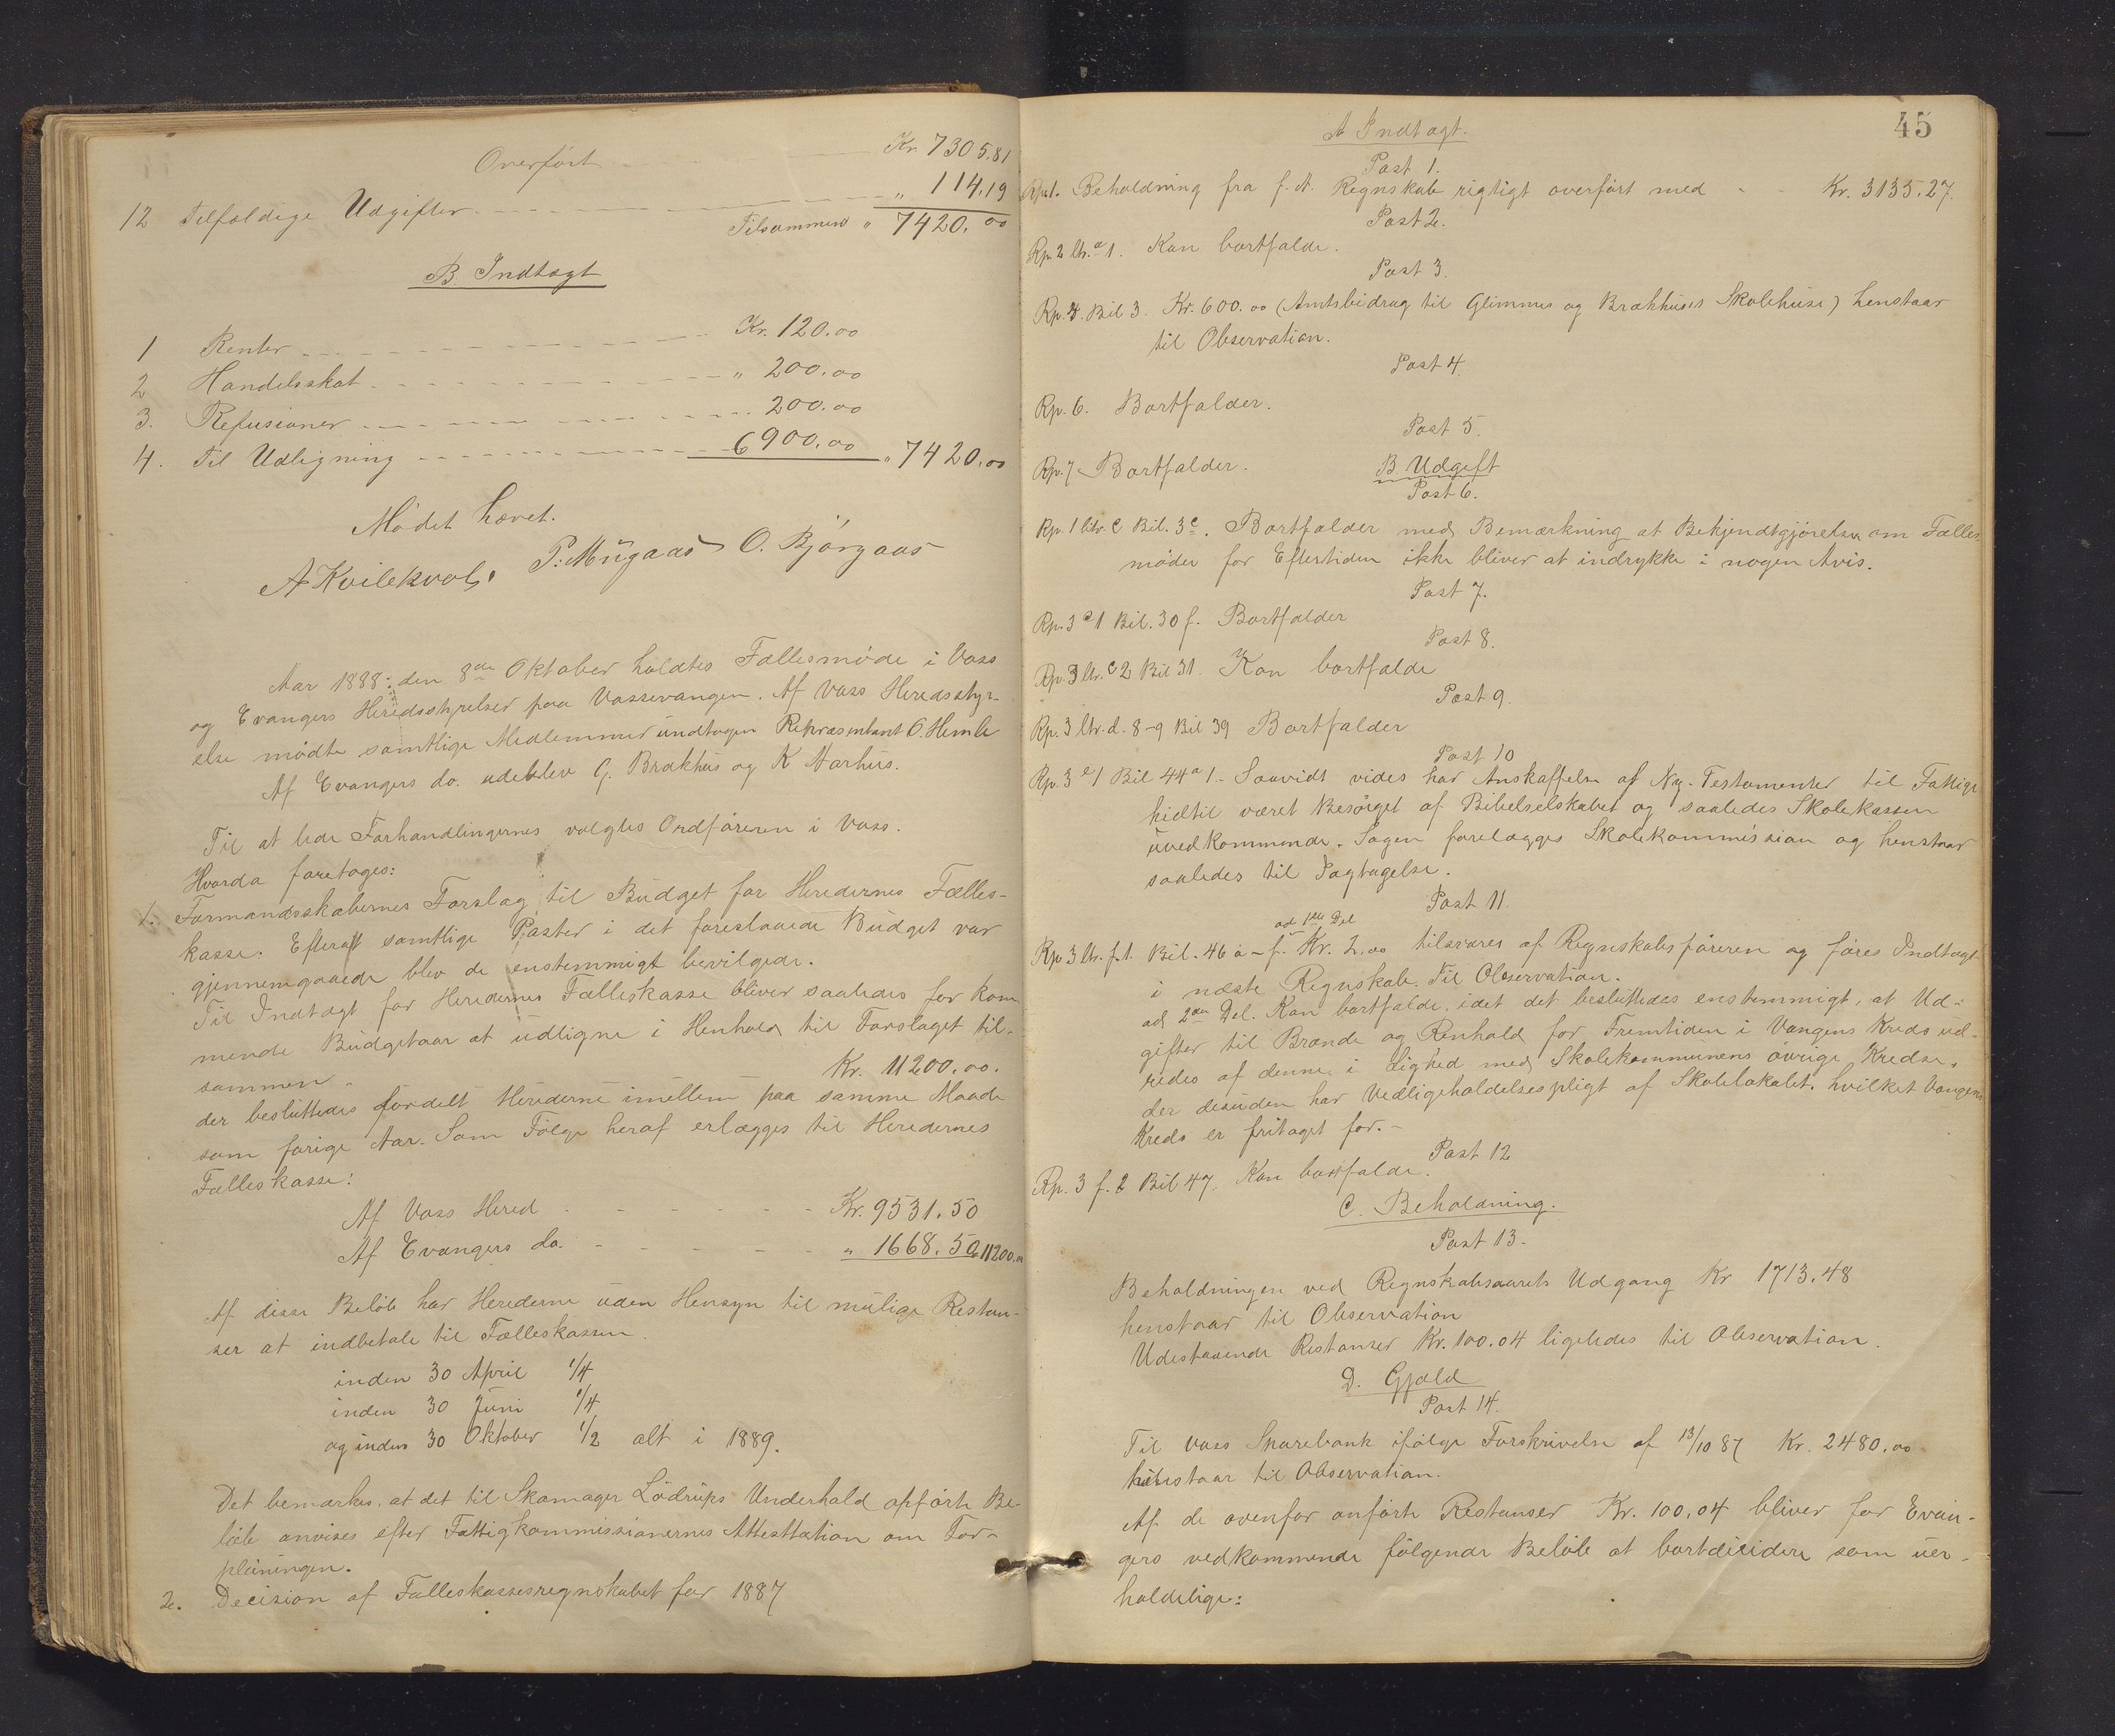 Overført - - - Kr. 7305.81
12 Tilfældige Udgifter - - - " 114.19
Tilsammen " 7420.00
B. Indtægt
1 Renter - - - Kr. 120.00
2 Handelsskat - - - " 200.00
3. Refusioner - - - 200.00
4. Til Udligning - - - 6900.00 " 7420.00
Mødet hævet.
A Kvilekval, P. Mügaas O. Bjørgaas
Aar 1888: den 8de Oktober holdtes Fællesmøde i Voss
og Evangers Heredsstyrelser paa Vossevangen. Af Voss Heredsstyr-
else mødte samtlige Medlemmer undtagen Repræsentant O. Hemle
Af Evangers do. udeblev G. Brækhus og K Aarhus.
Til at lede Forhandlingernes valgtes Ordføreren i Voss.
Hvorda foretoges:
1. Formandsskabernes Forslag til Budget for Heredernes Fælles-
kasse. Efterat samtlige Poster i det foreslaaede Budget var
gjennemgaaede blev de enstemmigt bevilgede.
Til Indtægt for Heredernes Fælleskasse bliver saaledes for kom
mende Budgetaar at udligne i Henhold til Forslaget til-
sammen - Kr. 11200.00.
der besluttedes fordelt Herederne imellem paa samme Maade
som forige Aar. Som Følge heraf erlægges til Heredernes
Fælleskasse:
Af Voss Hered - - - Kr. 9531.50
Af Evangers do. - - - " 1668.50 " 11200.00
Af disse Beløb har Herederne uden Hensyn til mulige Restan-
ser at indbetale til Fælleskassen.
inden 30 April 1/4
inden 30 Juni 1/4
og inden 30 Oktober 1/2 alt i 1889.
Det bemærkes, at det til Skomager Lødrups Underhold opførte Be-
løb anvises efter Fattigkommissionernes Attesttation om For-
pleiningen.
2. Decision af Fælleskassesregnskabet for 1887
45
A Indtægt.
Post 1.
Rp. 1. Beholdning fra f. A. Regnskab rigtigt overført med - - Kr. 3135.27.
Post 2.
Rp. 2 ltr. a 1. Kan bortfalde.
Post 3.
Rp. 4. Bil 3. Kr. 600.00 (Amtsbidrag til Glimmes og Brækhuses Skolehuse) henstaar
til Observation.
Post 4.
Rp. 6. Bortfalder.
Post 5.
Rp. 7 - Bortfalder.
B. Udgift
Post 6.
Rp. 1 ltr. c Bil. 3 c. Bortfalder med Bemærkning at Bekjendtgjørelser om Fælles
møder for Eftertiden ikke bliver at indrykke i nogen Avis.
Post 7.
Rp. 3 c 1 Bil. 30 f. Bortfalder
Post 8.
Rp. 3 ltr. c 2 Bil 31. Kan bortfalde
Post 9.
Rp. 3 ltr. d. 8-9 Bil 39 Bortfalder
Post 10
Rp. 3 e 1 Bil 44 a 1 - Saavidt vides har Anskaffelse af Ny-Testamenter til Fattige
hidtil været besørget af Bibelselskabet og saaledes Skolekassen
uvedkommende. Sagen forelægges Skolekommission og henstaar
saaledes til Iagtagelse.
Post 11.
ad 1ste Del
Rp 3 ltr. f. 1. Bil. 46 a-f. Kr. 2.00 tilsvares af Regnskabsføreren og føres Indtægt
i næste Regnskab. Til Observation.
ad 2den Del. Kan bortfalde, idet det besluttedes enstemmigt, at Ud-
gifter til Brænde og Renhold for Fremtiden i Vangens Kreds ud-
redes af denne i Lighed med Skolekommunens øvrige Kredse,
der desuden har Vedligeholdelsespligt af Skolelokalet, hvilket Vangens
Kreds er fritaget for. -
Post 12
Rp. 3 f. 2 Bil 47. Kan bortfalde.
C. Beholdning.
Post 13.
Beholdningen ved Regnskabsaarets Udgang Kr 1713.48
henstaar til Observation
Udestaaende Restanser Kr. 100.04 ligeledes til Observation.
D. Gjæld
Post 14.
Til Voss Sparebank ifølge Forskrivelse af 13/10 87 Kr. 2480.00
henstaar til Observation.
Af de ovenfor anførte Restanser Kr. 100.04 bliver for Evan-
gers vedkommende følgende Beløb at bortdecidere som uer-
holdelige: